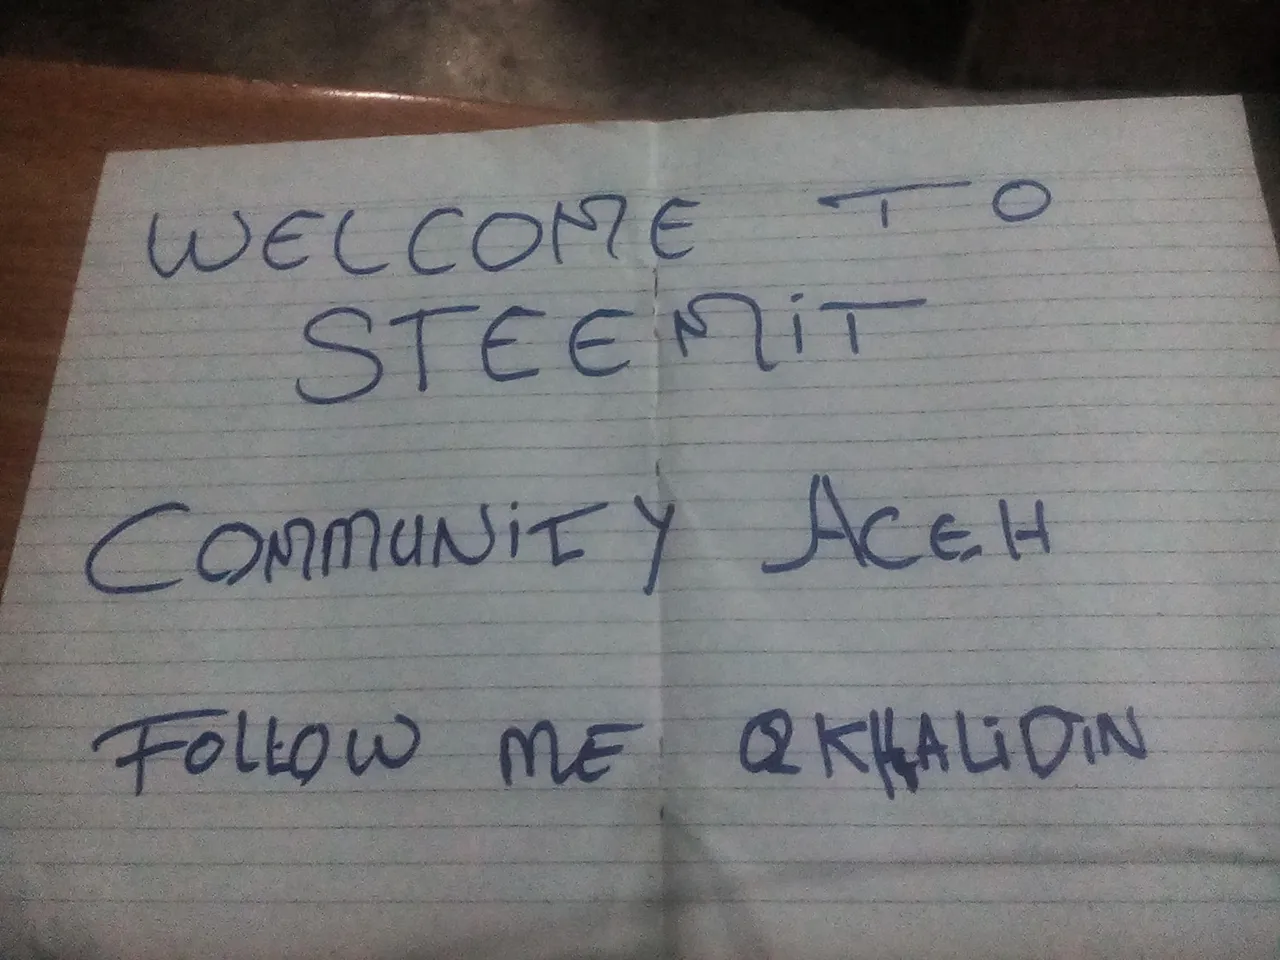 WELCOME TO
STEEMiT
COMMUNiTY ACEH
FOLLOW ME @KHALiDiN